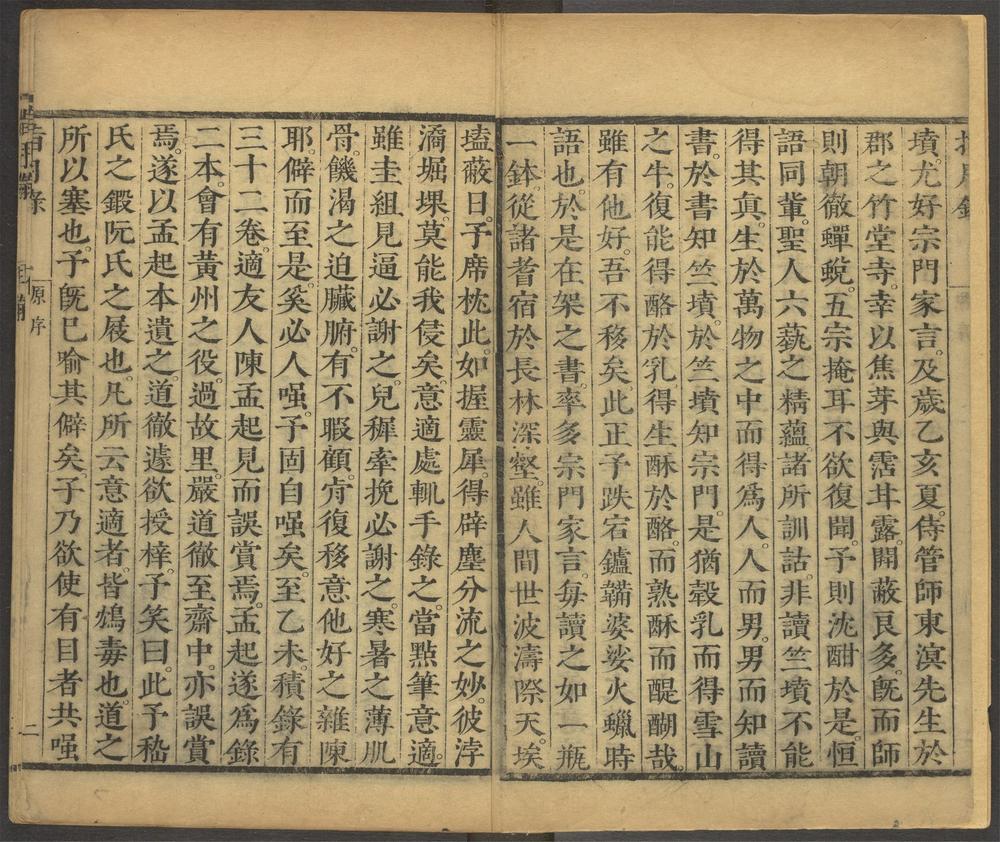 墳。尤好宗門家言。及歲乙亥夏。侍管師東溟先生於
郡之竹堂寺。幸以焦芽與霑甘露。開蔽良多。旣而師
則朝徹蟬蛻。五宗掩耳不欲復聞。予則沈酣於是。恒
語同輩。聖人六藝之精蘊諸所訓詁。非讀竺墳不能
得其眞。生於萬物之中而得爲人。人而男。男而知讀
書。於書知竺墳。於竺墳知宗門。是猶榖乳而得雪山
之牛。復能得酪於乳。得生酥於酪。而熟酥而醍醐哉。
雖有他好。吾不移矣。此正予跌宕鑪鞴婆娑火蠟時
語也。於是在架之書。率多宗門家言。每讀之如一瓶
一鉢。從諸耆宿於長林深壑。雖人間世波濤際天。埃
壒蔽日。予席枕此。如握靈犀。得辟塵分流之妙。彼浡
潏堀堁。莫能我侵矣。意適處輒手錄之。當點筆意適。
雖圭組見逼必謝之。兒穉牽挽必謝之。寒暑之薄肌
骨。饑渴之迫臟腑。有不暇顧。肯復移意他好之雜陳
耶。僻而至是。奚必人嗤。予固自嗤矣。至乙未。積錄有
三十二卷。適友人陳孟起見而誤賞焉。孟起遂爲錄
二本。會有黃州之役。過故里。嚴道徹至齋中。亦誤賞
焉。遂以孟起本遺之。道徹遽欲授梓。予笑曰。此予嵇
氏之鍛阮氏之屐也。凡所云意適者。皆鴆毒也。道之
所以塞也。予旣已喻其僻矣。予乃欲使有目者共嗤
指月錄
原序
二